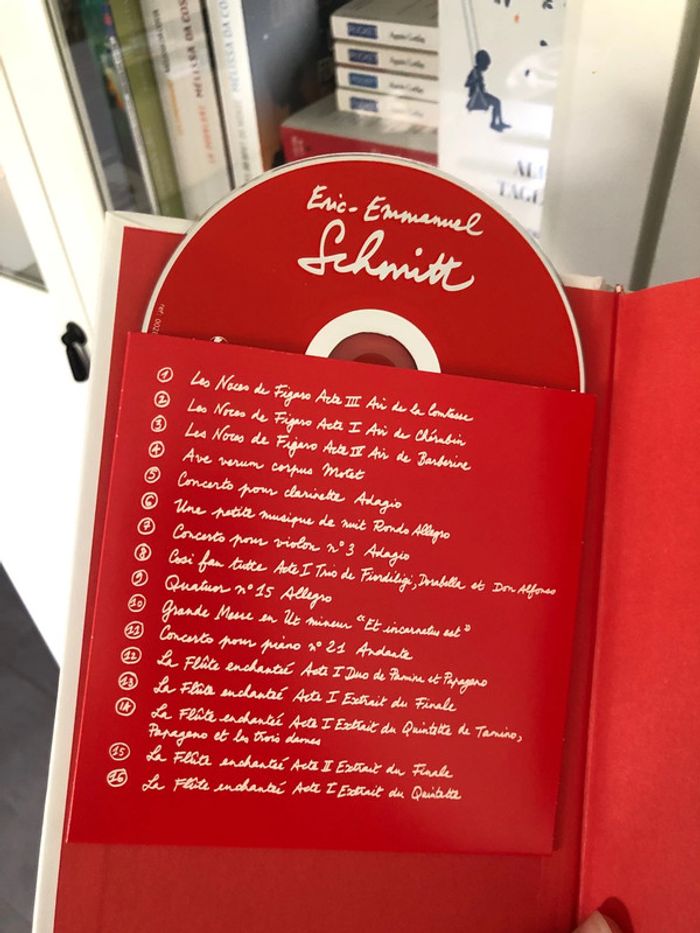 MELISSA DA COS
MELISSA DA COS
POCKET
Agnès Ledig
Eric-Emmanuel
Schmitt
① Les Noces de Figaro Acte III Air de la Comtesse
② Les Noces de Figaro Acte I Air de Chérubin
③ Les Noces de Figaro Acte IV Air de Barberine
④ Ave verum corpus Motet
⑤ Concerto pour clarinette Adagio
⑥ Une petite musique de nuit Rondo Allegro
⑦ Concerto pour violon n°3 Adagio
⑧ Cosi fan tutte Acte I Trio de Fiordiligi, Dorabella et Don Alfonso
⑨ Quatuor n°15 Allegro
⑩ Grande Messe en Ut mineur "Et incarnatus est"
⑪ Concerto pour piano n°21 Andante
⑫ La Flûte enchantée Acte I Duo de Pamina et Papageno
⑬ La Flûte enchantée Acte I Extrait du Finale
⑭ La Flûte enchantée Acte I Extrait du Quintette de Tamino,
Papageno et les trois dames
⑮ La Flûte enchantée Acte II Extrait du Finale
⑯ La Flûte enchantée Acte I Extrait du Quintette